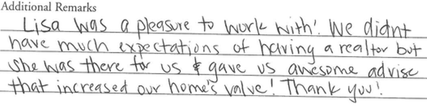 Additional Remarks
Lisa was a pleasure to work with! We didnt
have much expectations of having a realtor but
she was there for us & gave us awesome advise
that increased our home's value! Thank you!